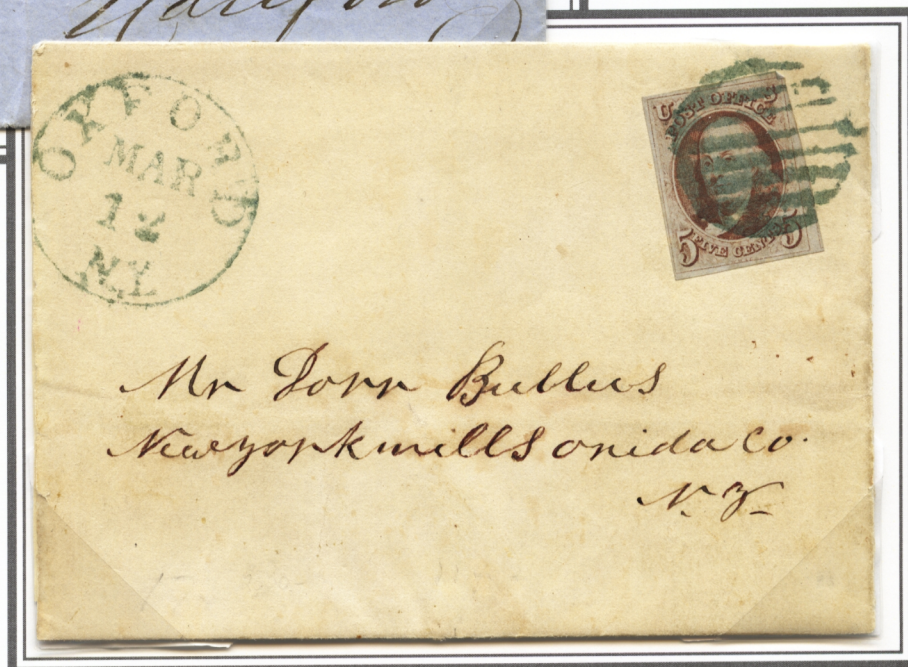 OXFORD
MAR
12
N.Y.
U S
POST OFFICE
5 FIVE CENTS 5
Mr Dorr Bullus
Newyorkmills onida Co.
N. Y.